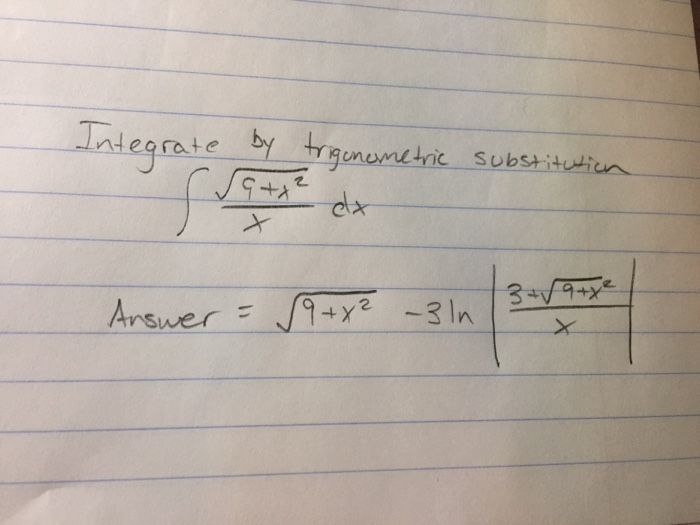 Integrate by trigonometric substitution
∫ √(9+x²) / x dx
Answer = √(9+x²) -3 ln | (3+√(9+x²)) / x |